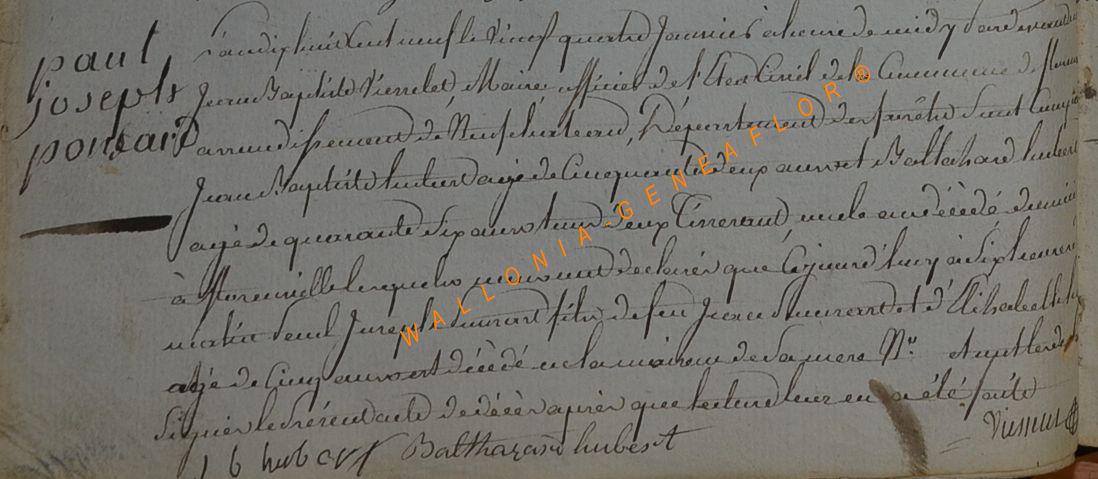 paul
joseph
poncard
L'an dix huit cent neuf le vingt quatre Janvier à heure de midy pardevant
Jean Baptiste Maire officier de l'Etat Civil de la Commune de
arrondissement de Neufchateau, Département des forêts sont
Jean Baptiste hubert agé de Cinquante deux ans et Balthazard hubert
agé de quarante six ans tous deux Tisserand, oncle au décédé
à lesquels nous ont déclarés que Cejourd'huy à six heures
matin Paul Joseph fils de feu Jean et d'Elisabeth
agé de Cinq ans est décédé en la maison de sa mere et ont les
signés le présent acte de décès après que lecture leur en a été faite
J b hubert Balthazard hubert
WALLONIA-GENEAFLOR®